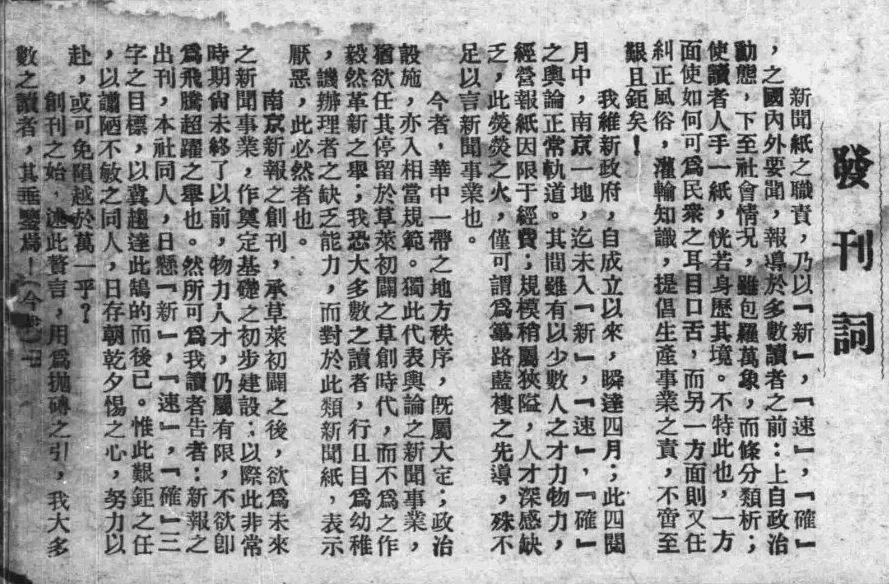 發刊詞
新聞紙之職責，乃以『新』，『速』，『確』
，之國內外要聞，報導於多數讀者之前：上自政治
動態，下至社會情况，雖包羅萬象，而條分類析；
使讀者人手一紙，恍若身歷其境。不特此也，一方
面使如何可爲民衆之耳目口舌，而另一方面則又任
糾正風俗，灌輸知識，提倡生產事業之責，不啻至
艱且鉅矣！
我維新政府，自成立以來，瞬達四月；此四閱
月中，南京一地，迄未入『新』，『速』，『確』
之輿論正常軌道。其間雖有以少數人之才力物力，
經營報紙因限于經費；規模稍屬狹隘，人才深感缺
乏，此熒熒之火，僅可謂爲篳路藍褸之先導，殊不
足以言新聞事業也。
今者，華中一帶之地方秩序，旣屬大定；政治
設施，亦入相當規範。獨此代表輿論之新聞事業，
猶欲任其停留於草萊初闢之草創時代，而不爲之作
毅然革新之舉；我恐大多數之讀者，行且目爲幼稚
，譏辦理者之缺乏能力，而對於此類新聞紙，表示
厭惡，此必然者也。
南京新報之創刊，承草萊初闢之後，欲爲未來
之新聞事業，作奠定基礎之初步建設；以際此非常
時期尙未終了以前，物力人才，仍屬有限，不欲卽
爲飛騰超躍之舉也。然所可爲我讀者告者：新報之
出刊，本社同人，日懸『新』，『速』，『確』三
字之目標，以冀趨達此鵠的而後已。惟此艱鉅之任
，以譾陋不敏之同人，日存朝乾夕惕之心，努力以
赴，或可免隕越於萬一乎？
創刊之始，述此贅言，用爲拋磚之引，我大多
數之讀者，其垂鑒焉！（今